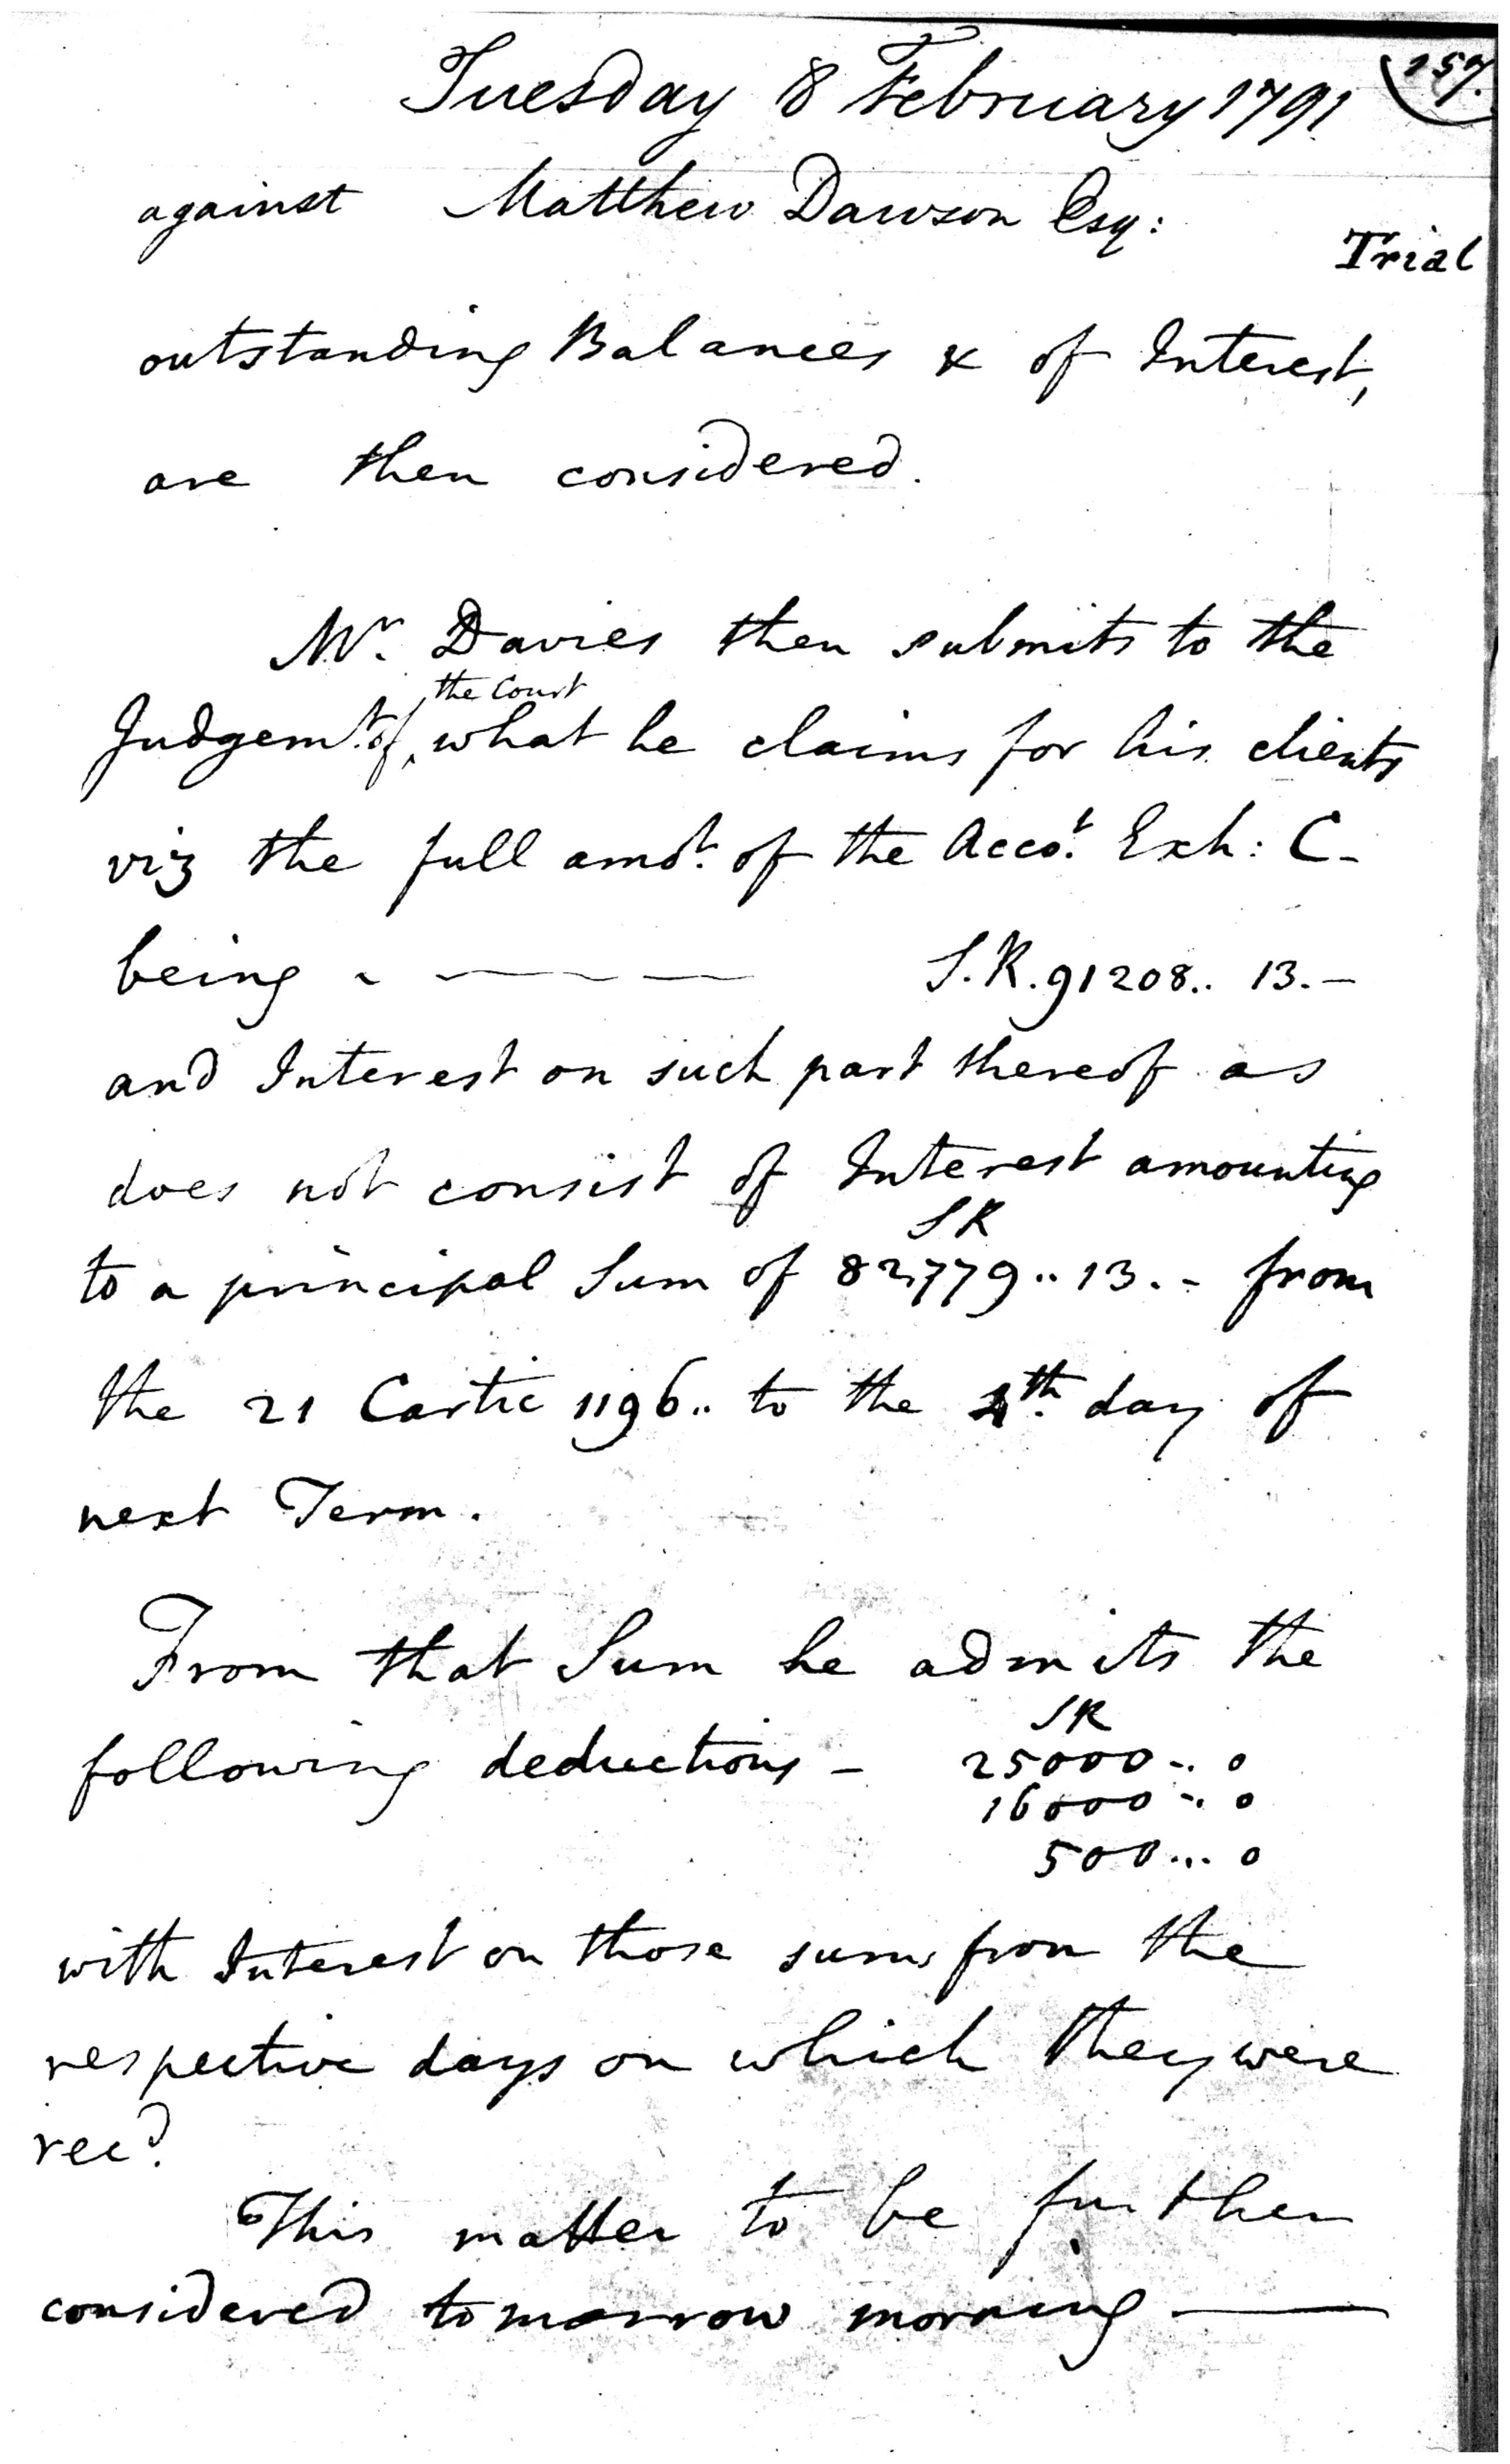 Tuesday 8 February 1791
157.
against Matthew Dawson Esq:
Trial
outstanding Balances & of Interest,
are then considered.
Mr. Davies then submits to the
the Court
Judgemt. of, what he claims for his clients
viz the full amot. of the Accot. Exh: C-
being - ———— S.R. 91208.. 13.-
and Interest on such part thereof as
does not consist of Interest amounting
SR
to a principal Sum of 82,779.. 13.- from
the 21 Cartic 1196.. to the 4th. day of
next Term.
From that Sum he admits the
SR
following deductions - 25000-.. 0
16000-.. 0
500... 0
with Interest on those sums from the
respective days on which they were
recd.
This matter to be further
considered tomorrow morning ———